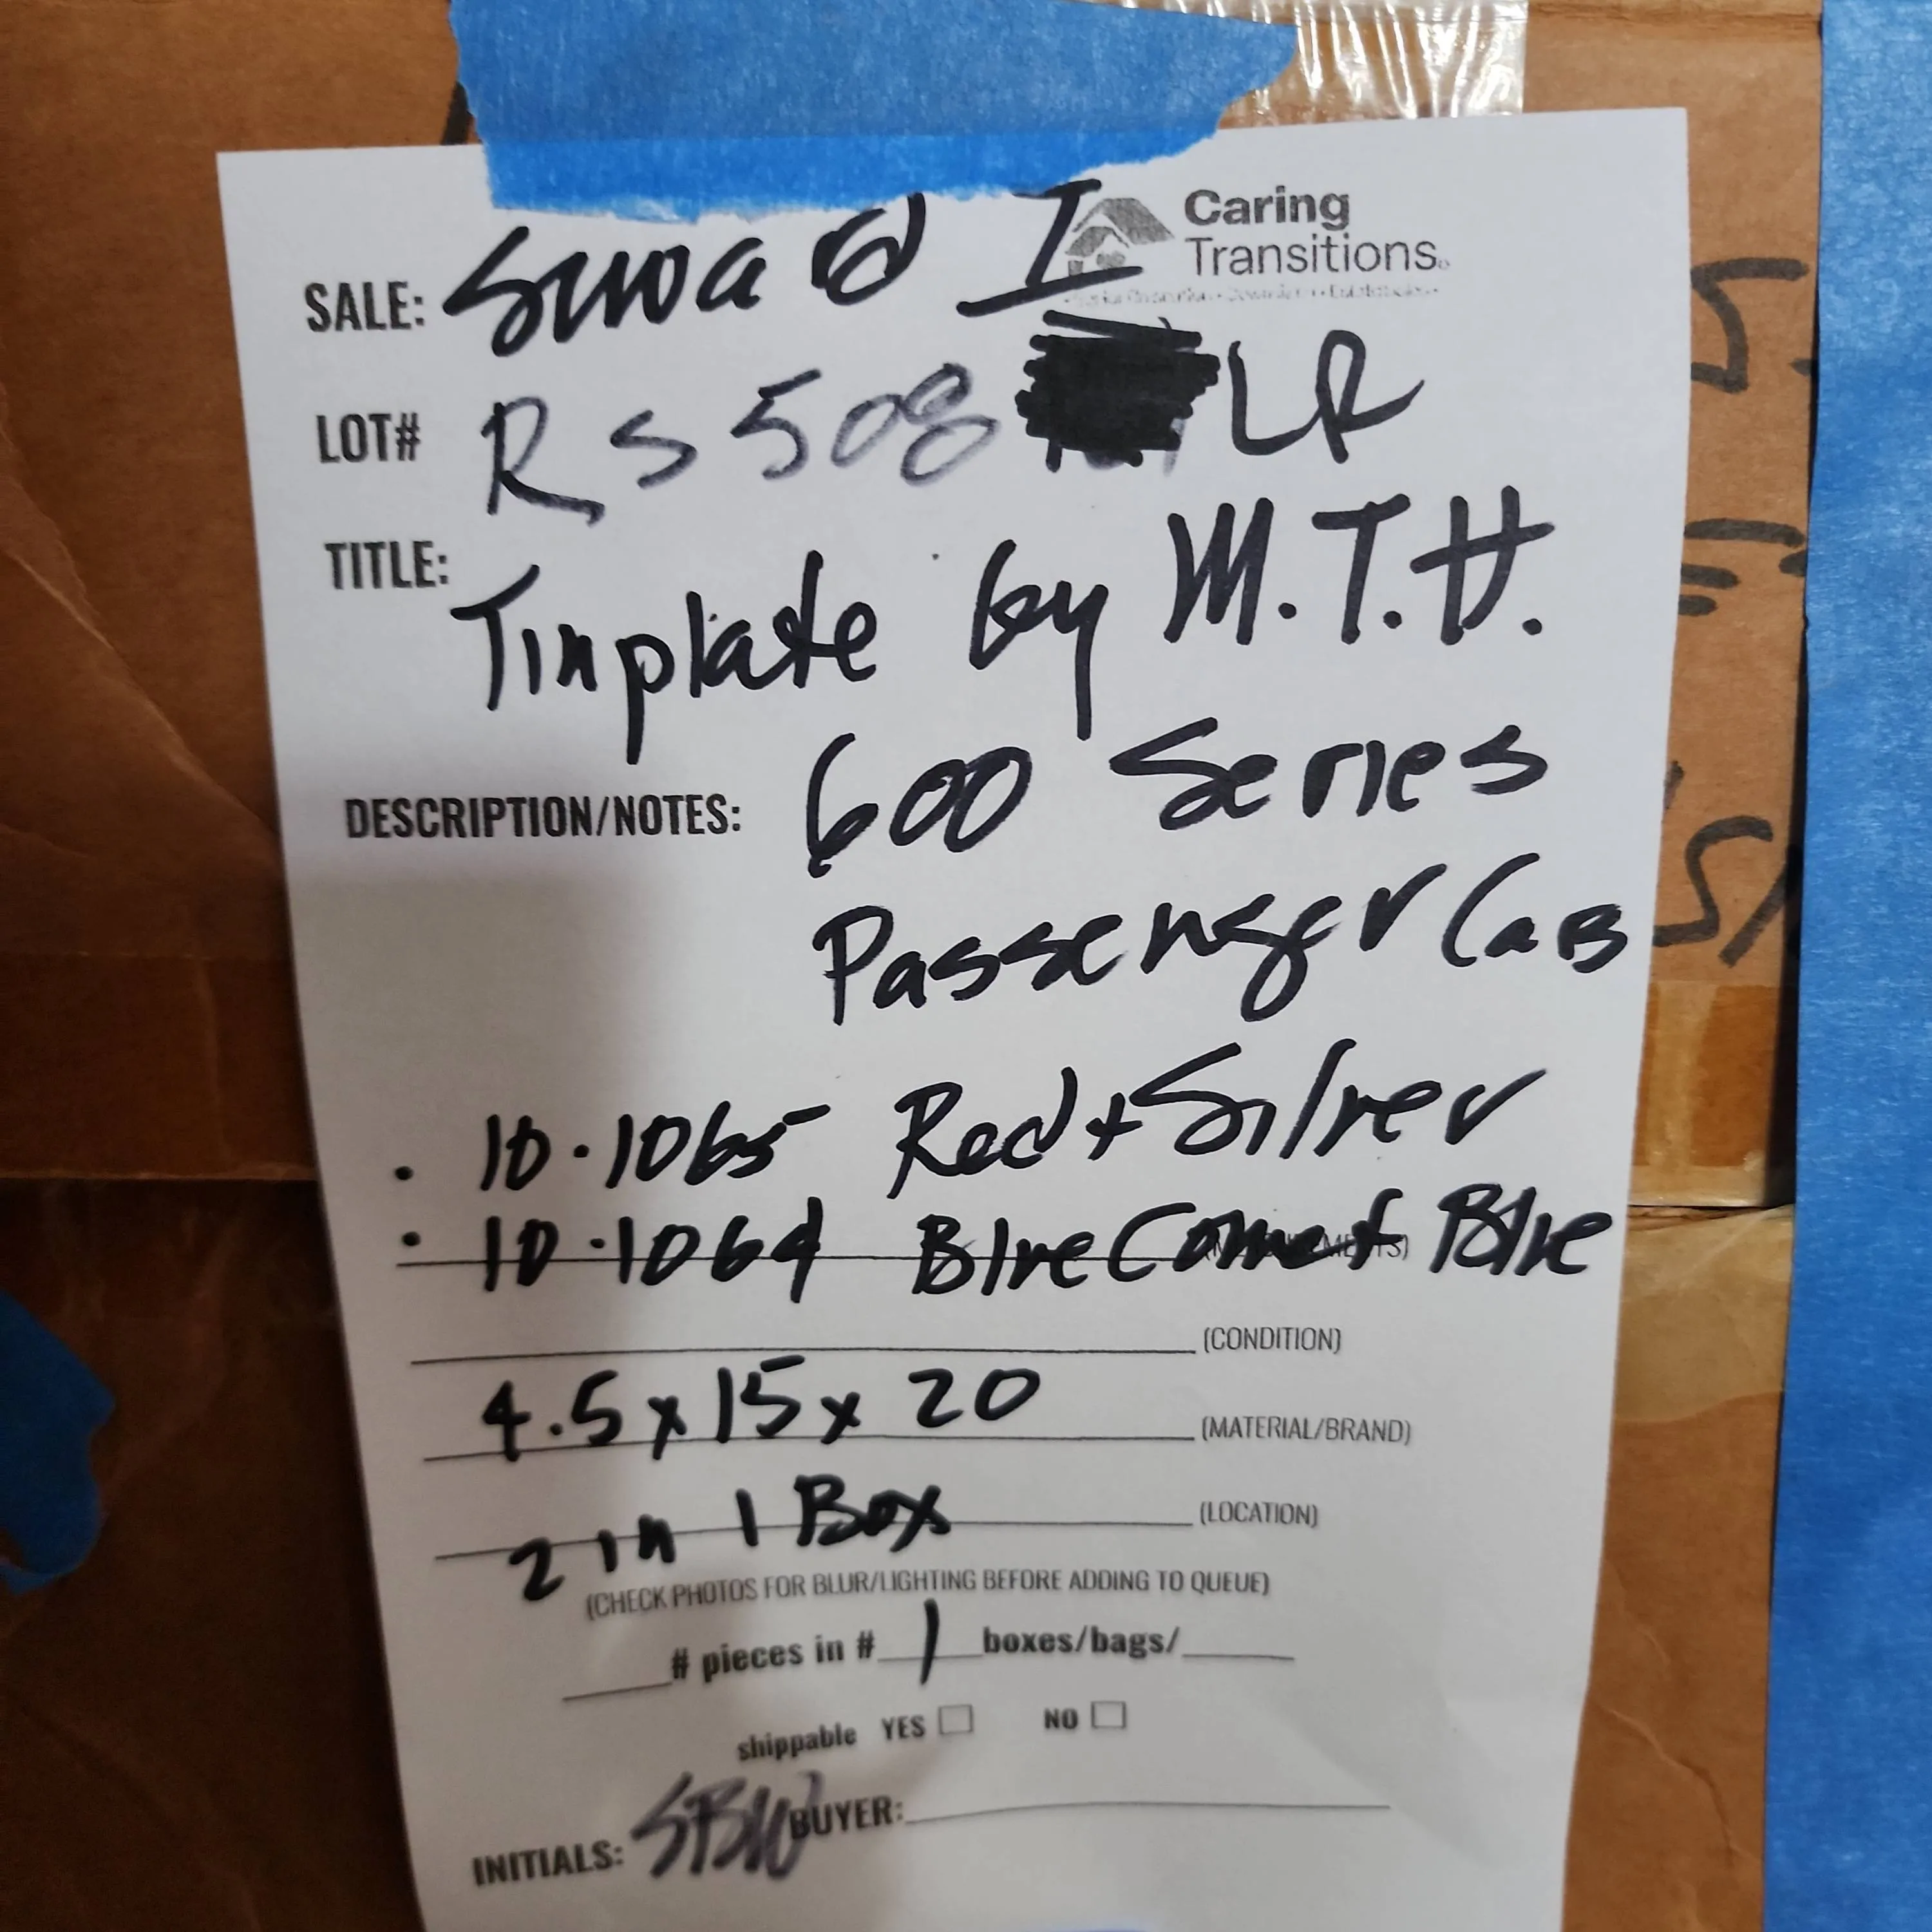 Caring
Transitions
SALE: Swad I
LOT# RS508 LR
TITLE: Tinplate by M.T.H.
DESCRIPTION/NOTES: 600 Series
Passenger Cars
• 10·1065 Red + Silver
• 10·1064 Blue Comet Blue
(CONDITION)
4.5 x 15 x 20 (MATERIAL/BRAND)
2 in 1 Box (LOCATION)
(CHECK PHOTOS FOR BLUR/LIGHTING BEFORE ADDING TO QUEUE)
# pieces in # 1 boxes/bags/
shippable YES NO
INITIALS: SBW BUYER: